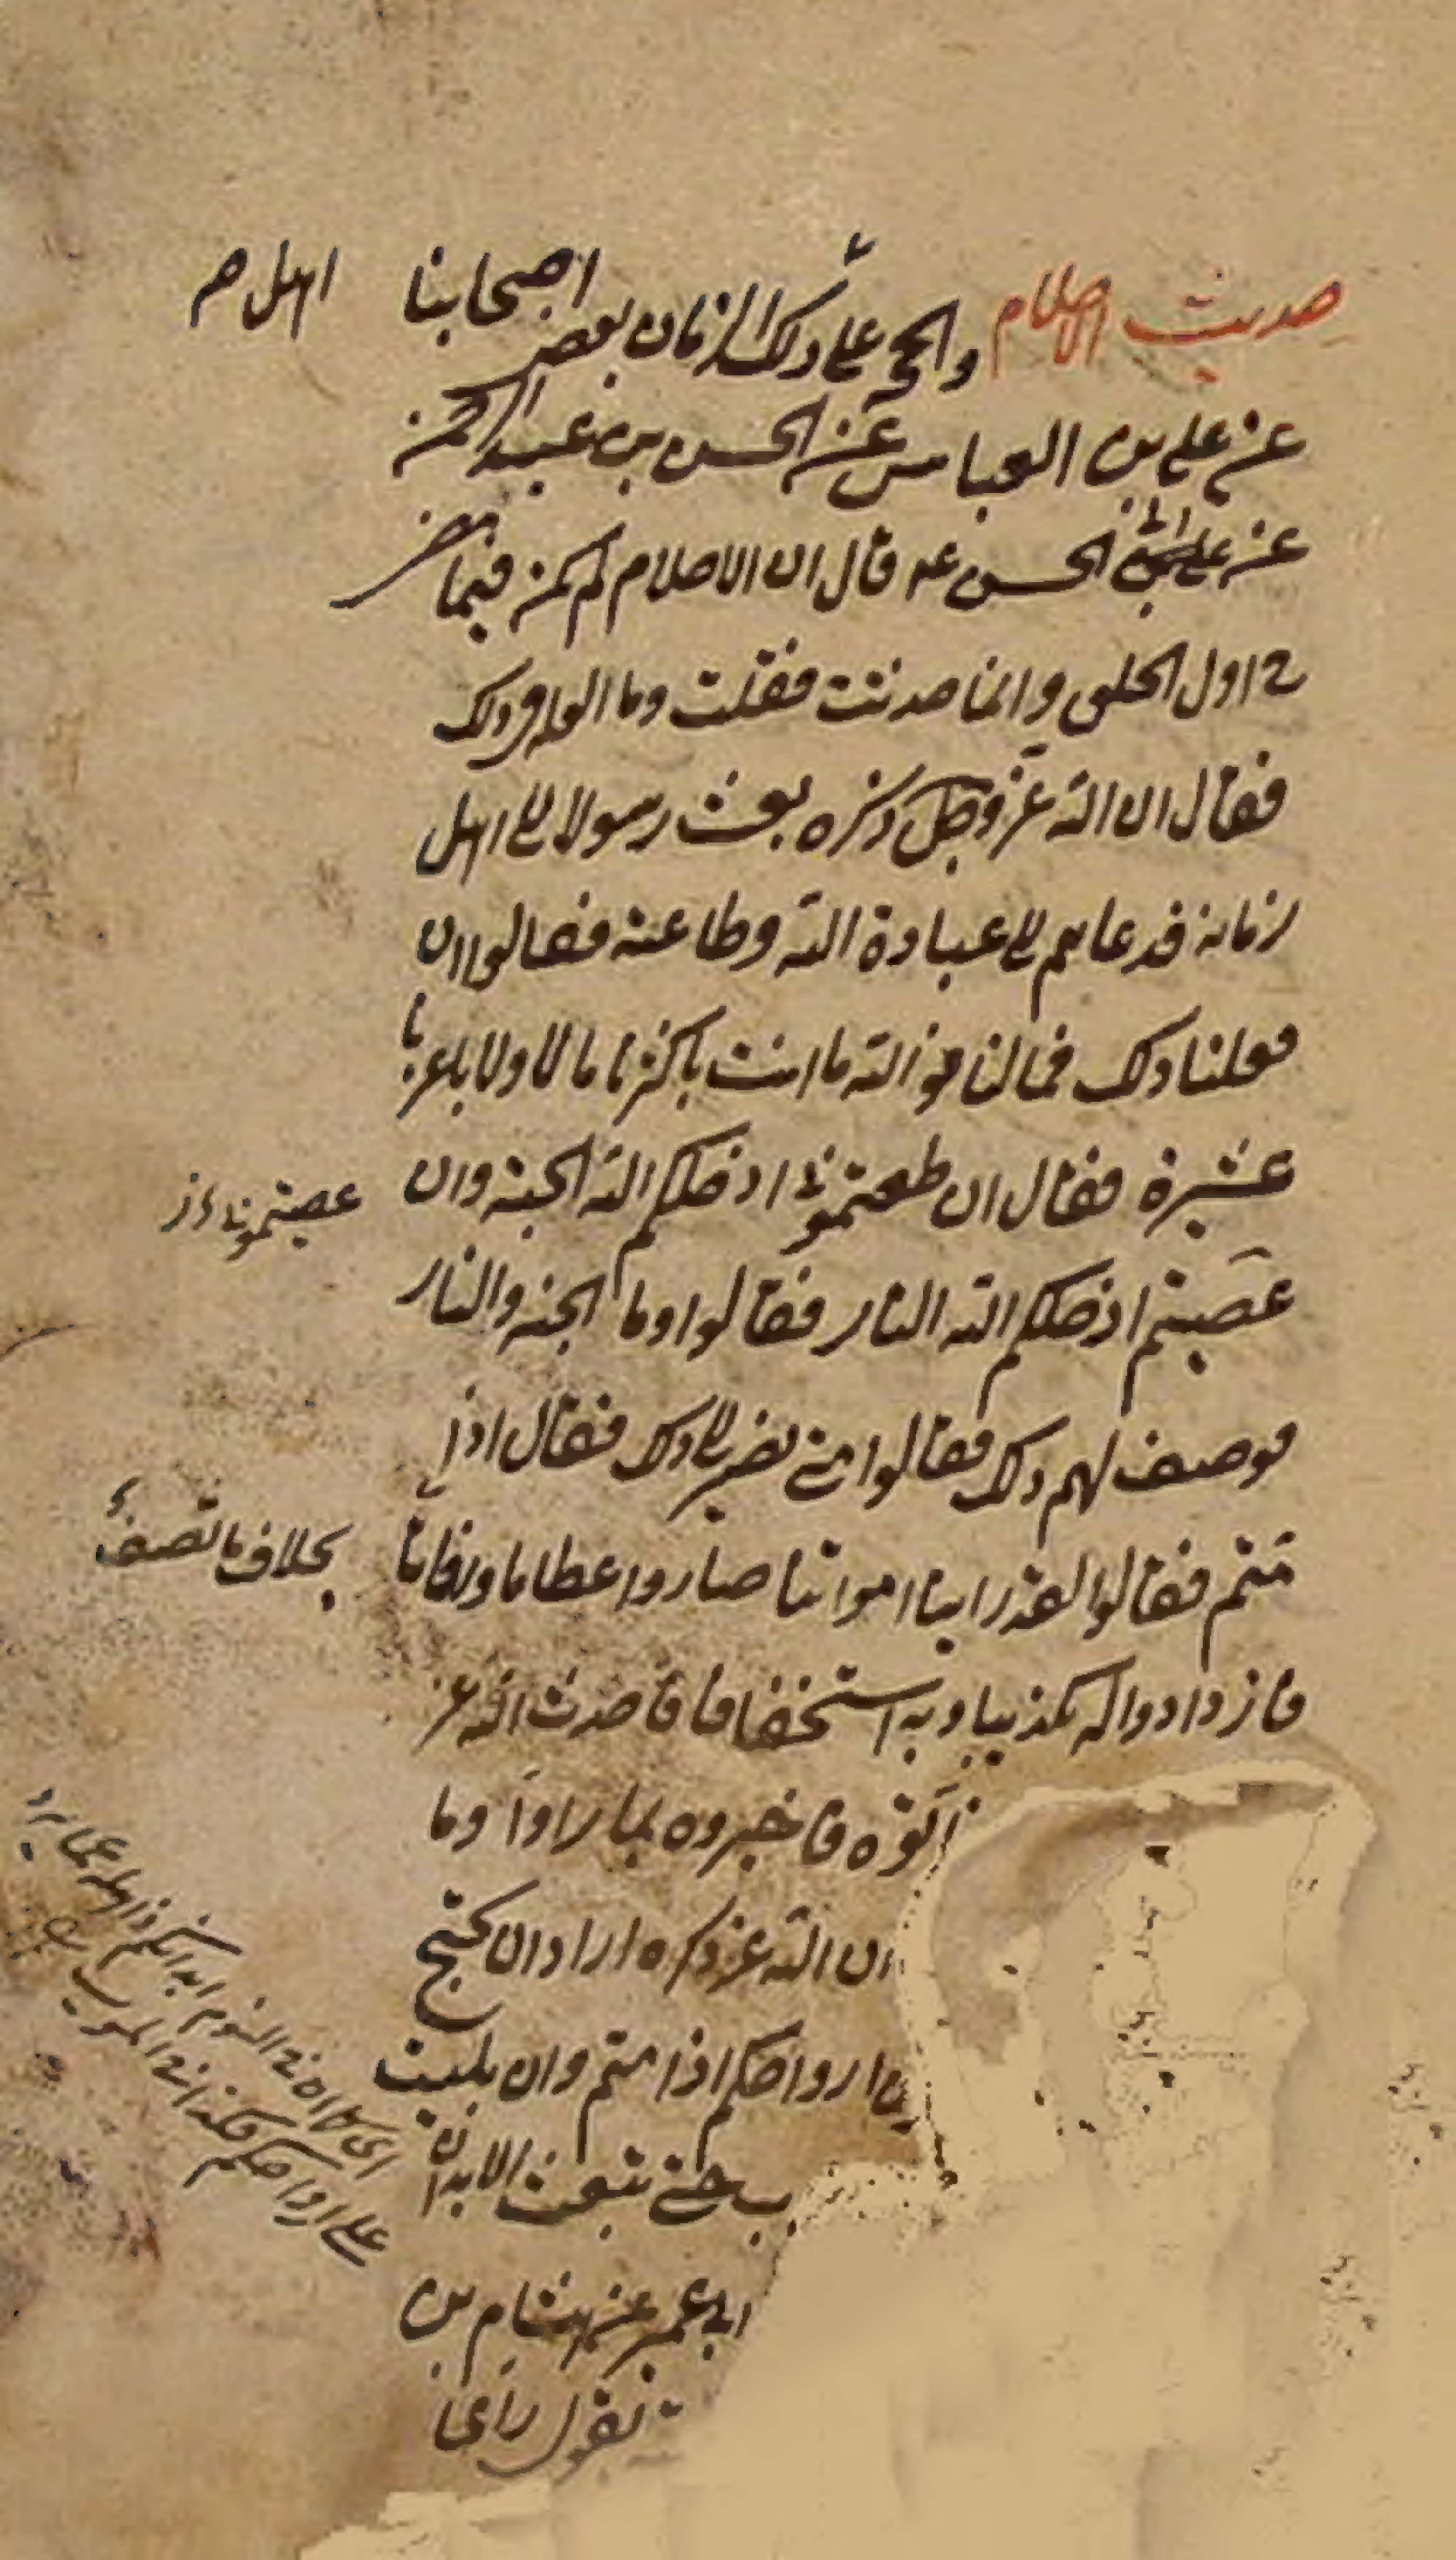 حديث الاحلام والحجة على اهل ذلك الزمان بعض اصحابنا
عن علي بن العباس عن الحسن بن عبد الرحمن
عن ابي الحسن عه قال ان الاحلام لم يكن فيما مضى
في اول الخلق وانما حدثت فقلت وما العلة في ذلك
فقال ان الله عز وجل ذكره بعث رسولا الى اهل
زمانه فدعاهم الى عبادة الله وطاعته فقالوا ان
فعلنا ذلك فما لنا فوالله ما انت باكثرنا مالا ولا باعزنا
عشيرة فقال ان اطعتموني ادخلكم الله الجنة وان
عصيتم ادخلكم الله النار فقالوا وما الجنة والنار
فوصف لهم ذلك فقالوا متى نصير الى ذلك فقال اذا
متم فقالوا لقد راينا امواتنا صاروا عظاما ورفاتا
فازدادوا له تكذيبا وبه استخفافا فاحدث الله عز
اتوه فاخبروه بما راوا وما
ان الله عز ذكره اراد ان يحتج
ارواحكم اذا متم وان بليت
حتى تبعث الابدان
ابي عمير عن هشام بن
يقول راي
اهل
عصيتموني
بخلاف ما تصف